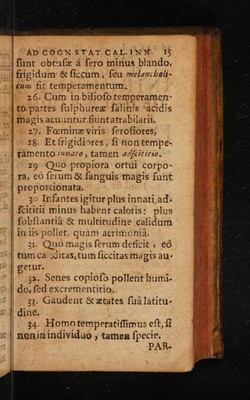 AD COGN. STAT CAL. INN. 15
sunt obtusæ à sero minus blando,
frigidum & siccum, seu melancholi-
cum fit temperamentum.
26. Cum in bilioso temperamen-
to partes sulphureæ salinis acidis
magis acuuntur. fiunt atrabilarii.
27. Fœminæ viris serosiores,
28. Et frigidiores, si non tempe-
ramento innato, tamen adscititio.
29 Quò propiora ortui corpo-
ra, eò serum & sanguis magis sunt
proportionata.
30 Infantes igitur plus innati, ad-
scititii minus habent caloris: plus
substantiâ & multitudine calidum
in iis pollet. quàm acrimoniâ.
31. Quò magis serum deficit, eò
tum caliditas, tum siccitas magis au-
getur.
32. Senes copioso pollent humi-
do, sed excrementitio.
33. Gaudent & ætates suâ latitu-
dine.
34. Homo temperatissimus est, si
non in individuo, tamen specie.
PAR-